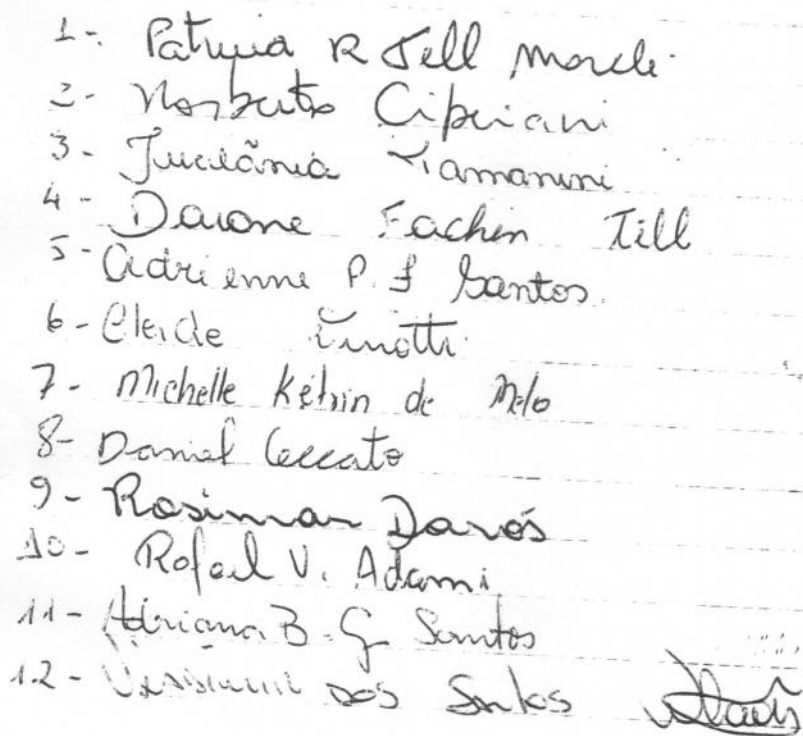 1- Patricia R Tell
2- Norberto Cipriani
3- Jucelânia Tamanini
4- Daione Fachin Till
5- Adrienne P. F Santos
6- Cleide
7- Michelle Kétrin de Melo
8- Daniel Ceccato
9- Rosimar Darós
10- Rafael V. Adami
11- Adriana B. G Santos
12- dos Santos